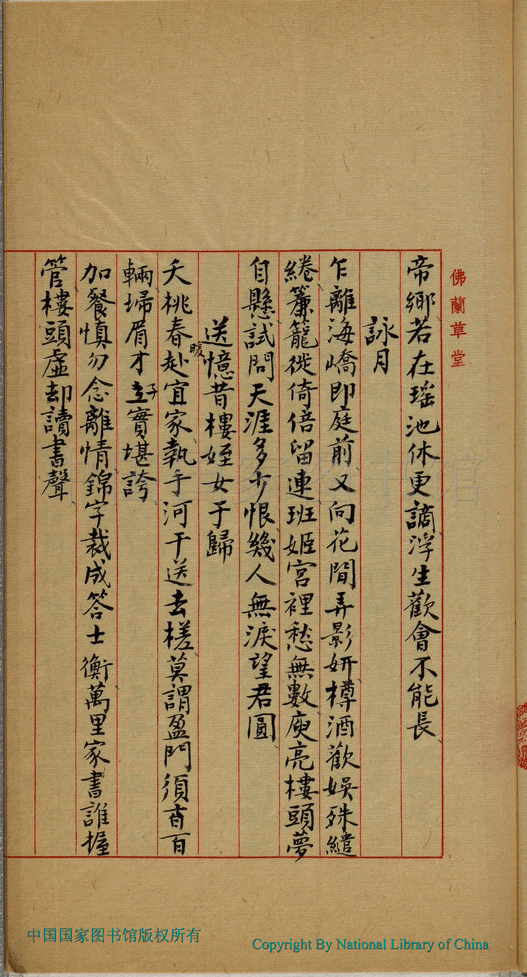 佛蘭草堂
帝鄉若在瑶池休更謫浮生歡會不能長
詠月
乍離海嶠即庭前又向花間弄影妍樽酒歡娛殊繾
綣簾籠徙倚倍留連班姬宮裡愁無數庾亮樓頭夢
自懸試問天涯多少恨幾人無淚望君圓
送憶昔樓姪女于歸
夭桃春暖赴宜家執手河干送去槎莫謂盈門須百
輛埽眉才子實堪誇
加餐慎勿念離情錦字裁成答士衡萬里家書誰握
管樓頭虛却讀書聲
中国国家图书馆版权所有
Copyright By National Library of China